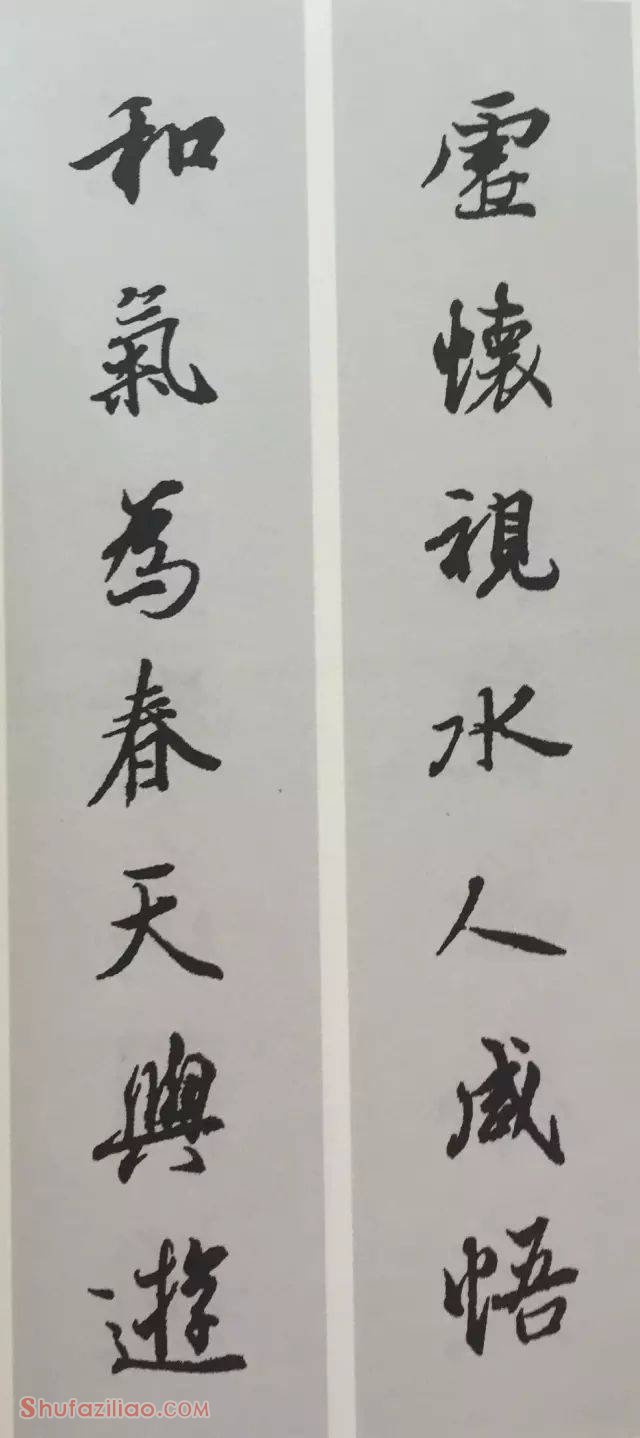 虛懷視水人咸悟
和氣為春天與遊
Shufaziliao.com